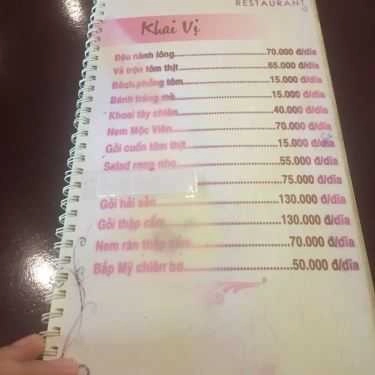 RESTAURANT
Khai Vị
Đậu nành lông 70.000 đ/dĩa
Vả trộn tôm thịt 65.000 đ/dĩa
Bánh phồng tôm 15.000 đ/dĩa
Bánh tráng mè 15.000 đ/dĩa
Khoai tây chiên 40.000 đ/dĩa
Nem Mộc Viên 70.000 đ/dĩa
Gỏi cuốn tôm thịt 15.000 đ/dĩa
Salad rong nho 55.000 đ/dĩa
75.000 đ/dĩa
Gỏi hải sản 130.000 đ/dĩa
Gỏi thập cẩm 130.000 đ/dĩa
Nem rán thập cẩm 70.000 đ/dĩa
Bắp Mỹ chiên bơ 50.000 đ/dĩa